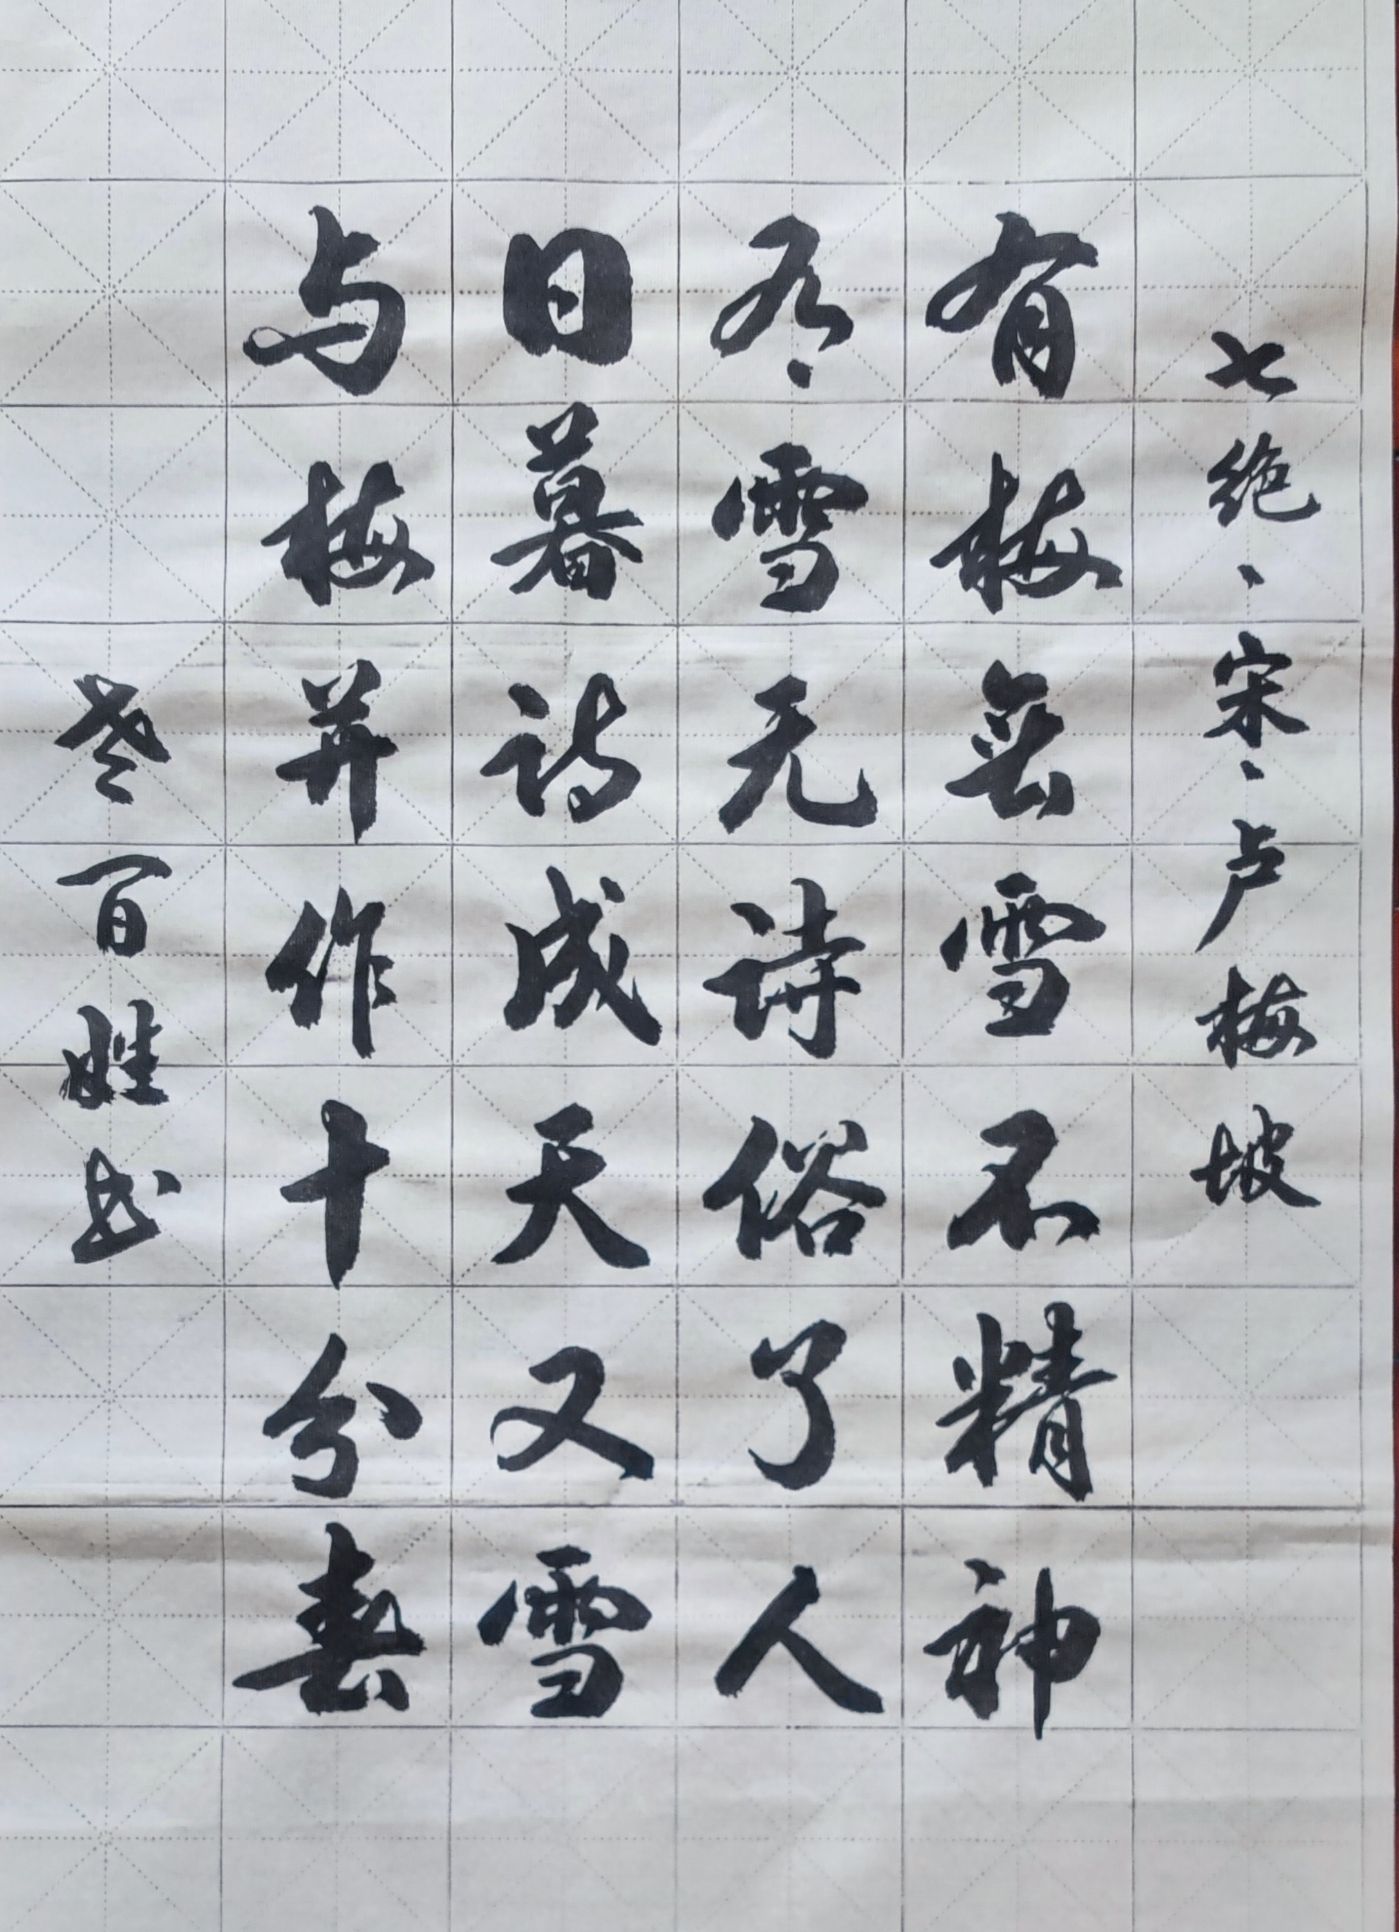 七绝、宋、卢梅坡
有梅無雪不精神
有雪无诗俗了人
日暮诗成天又雪
与梅并作十分春
老百姓书